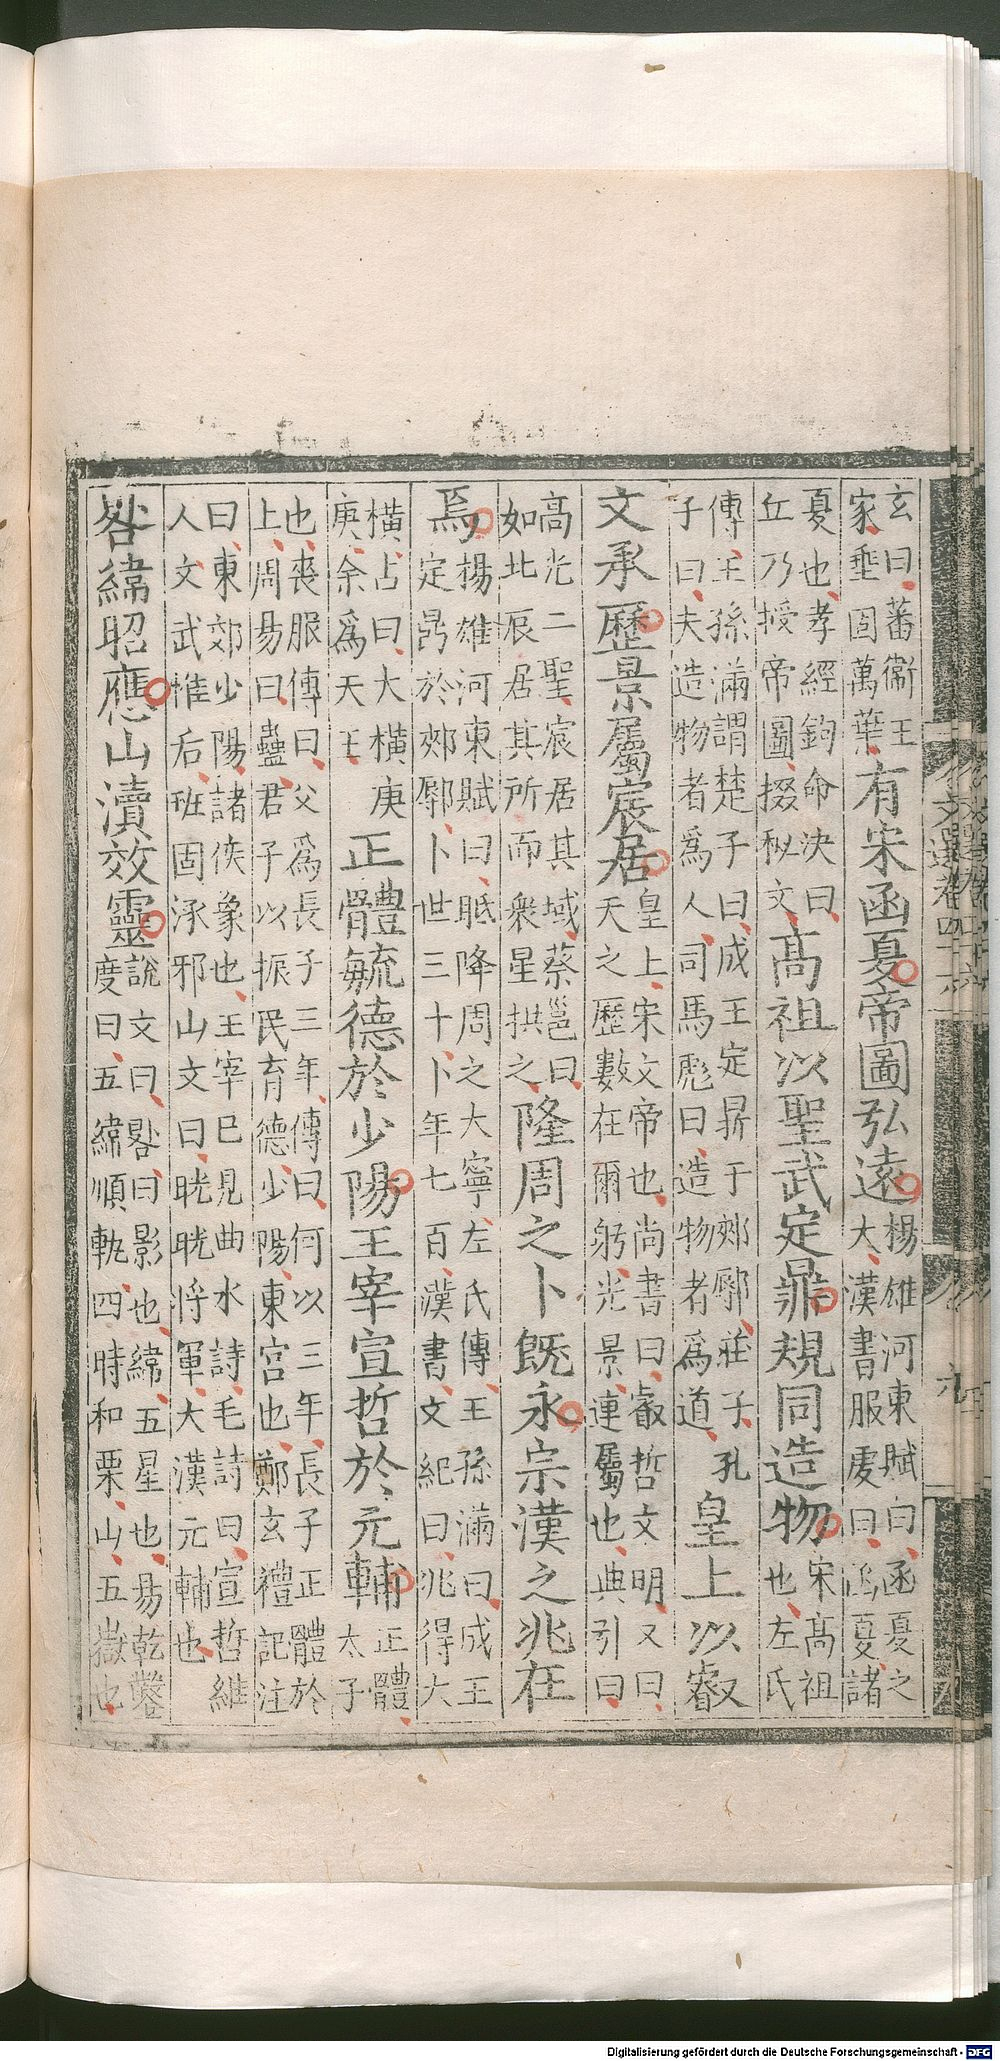 文選卷四十六
九
玄曰蕃衞王
家垂固萬葉
有宋函夏帝圖弘遠
楊雄河東賦曰函夏之
大漢書服虔曰函夏諸
夏也孝經鉤命決曰
丘乃授帝圖掇秘文
高祖以聖武定鼎規同造物
宋高祖
也左氏
傳王孫滿謂楚子曰成王定鼎于郟鄏莊子孔
子曰夫造物者爲人司馬彪曰造物者爲道
皇上以叡
文承歷景屬宸居
皇上宋文帝也尚書曰叡哲文明又曰
天之歷數在爾躬光景連屬也典引曰
高光二聖宸居其域蔡邕曰
如北辰居其所而衆星拱之
隆周之卜旣永宗漢之兆在
焉
楊雄河東賦曰眽降周之大寧左氏傳王孫滿曰成王
定鼎於郟鄏卜世三十卜年七百漢書文紀曰兆得大
橫占曰大橫庚
庚余爲天王
正體毓德於少陽王宰宣哲於元輔
正體
太子
也喪服傳曰父爲長子三年傳曰何以三年長子正體於
上周易曰蠱君子以振民育德少陽東宮也鄭玄禮記注
曰東郊少陽諸侯象也王宰已見曲水詩毛詩曰宣哲維
人文武惟后班固涿邪山文曰晄晄將軍大漢元輔也
晷緯昭應山瀆效靈
說文曰晷曰影也緯五星也易乾鑿
度曰五緯順軌四時和栗山五嶽也
Digitalisierung gefördert durch die Deutsche Forschungsgemeinschaft - DFG